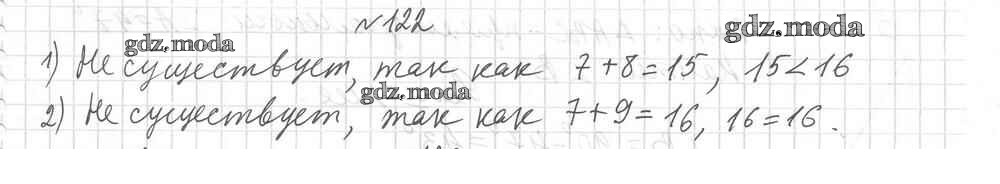 №122
gdz.moda
gdz.moda
1) Не существует, так как 7+8=15, 15<16
gdz.moda
2) Не существует, так как 7+9=16, 16=16.